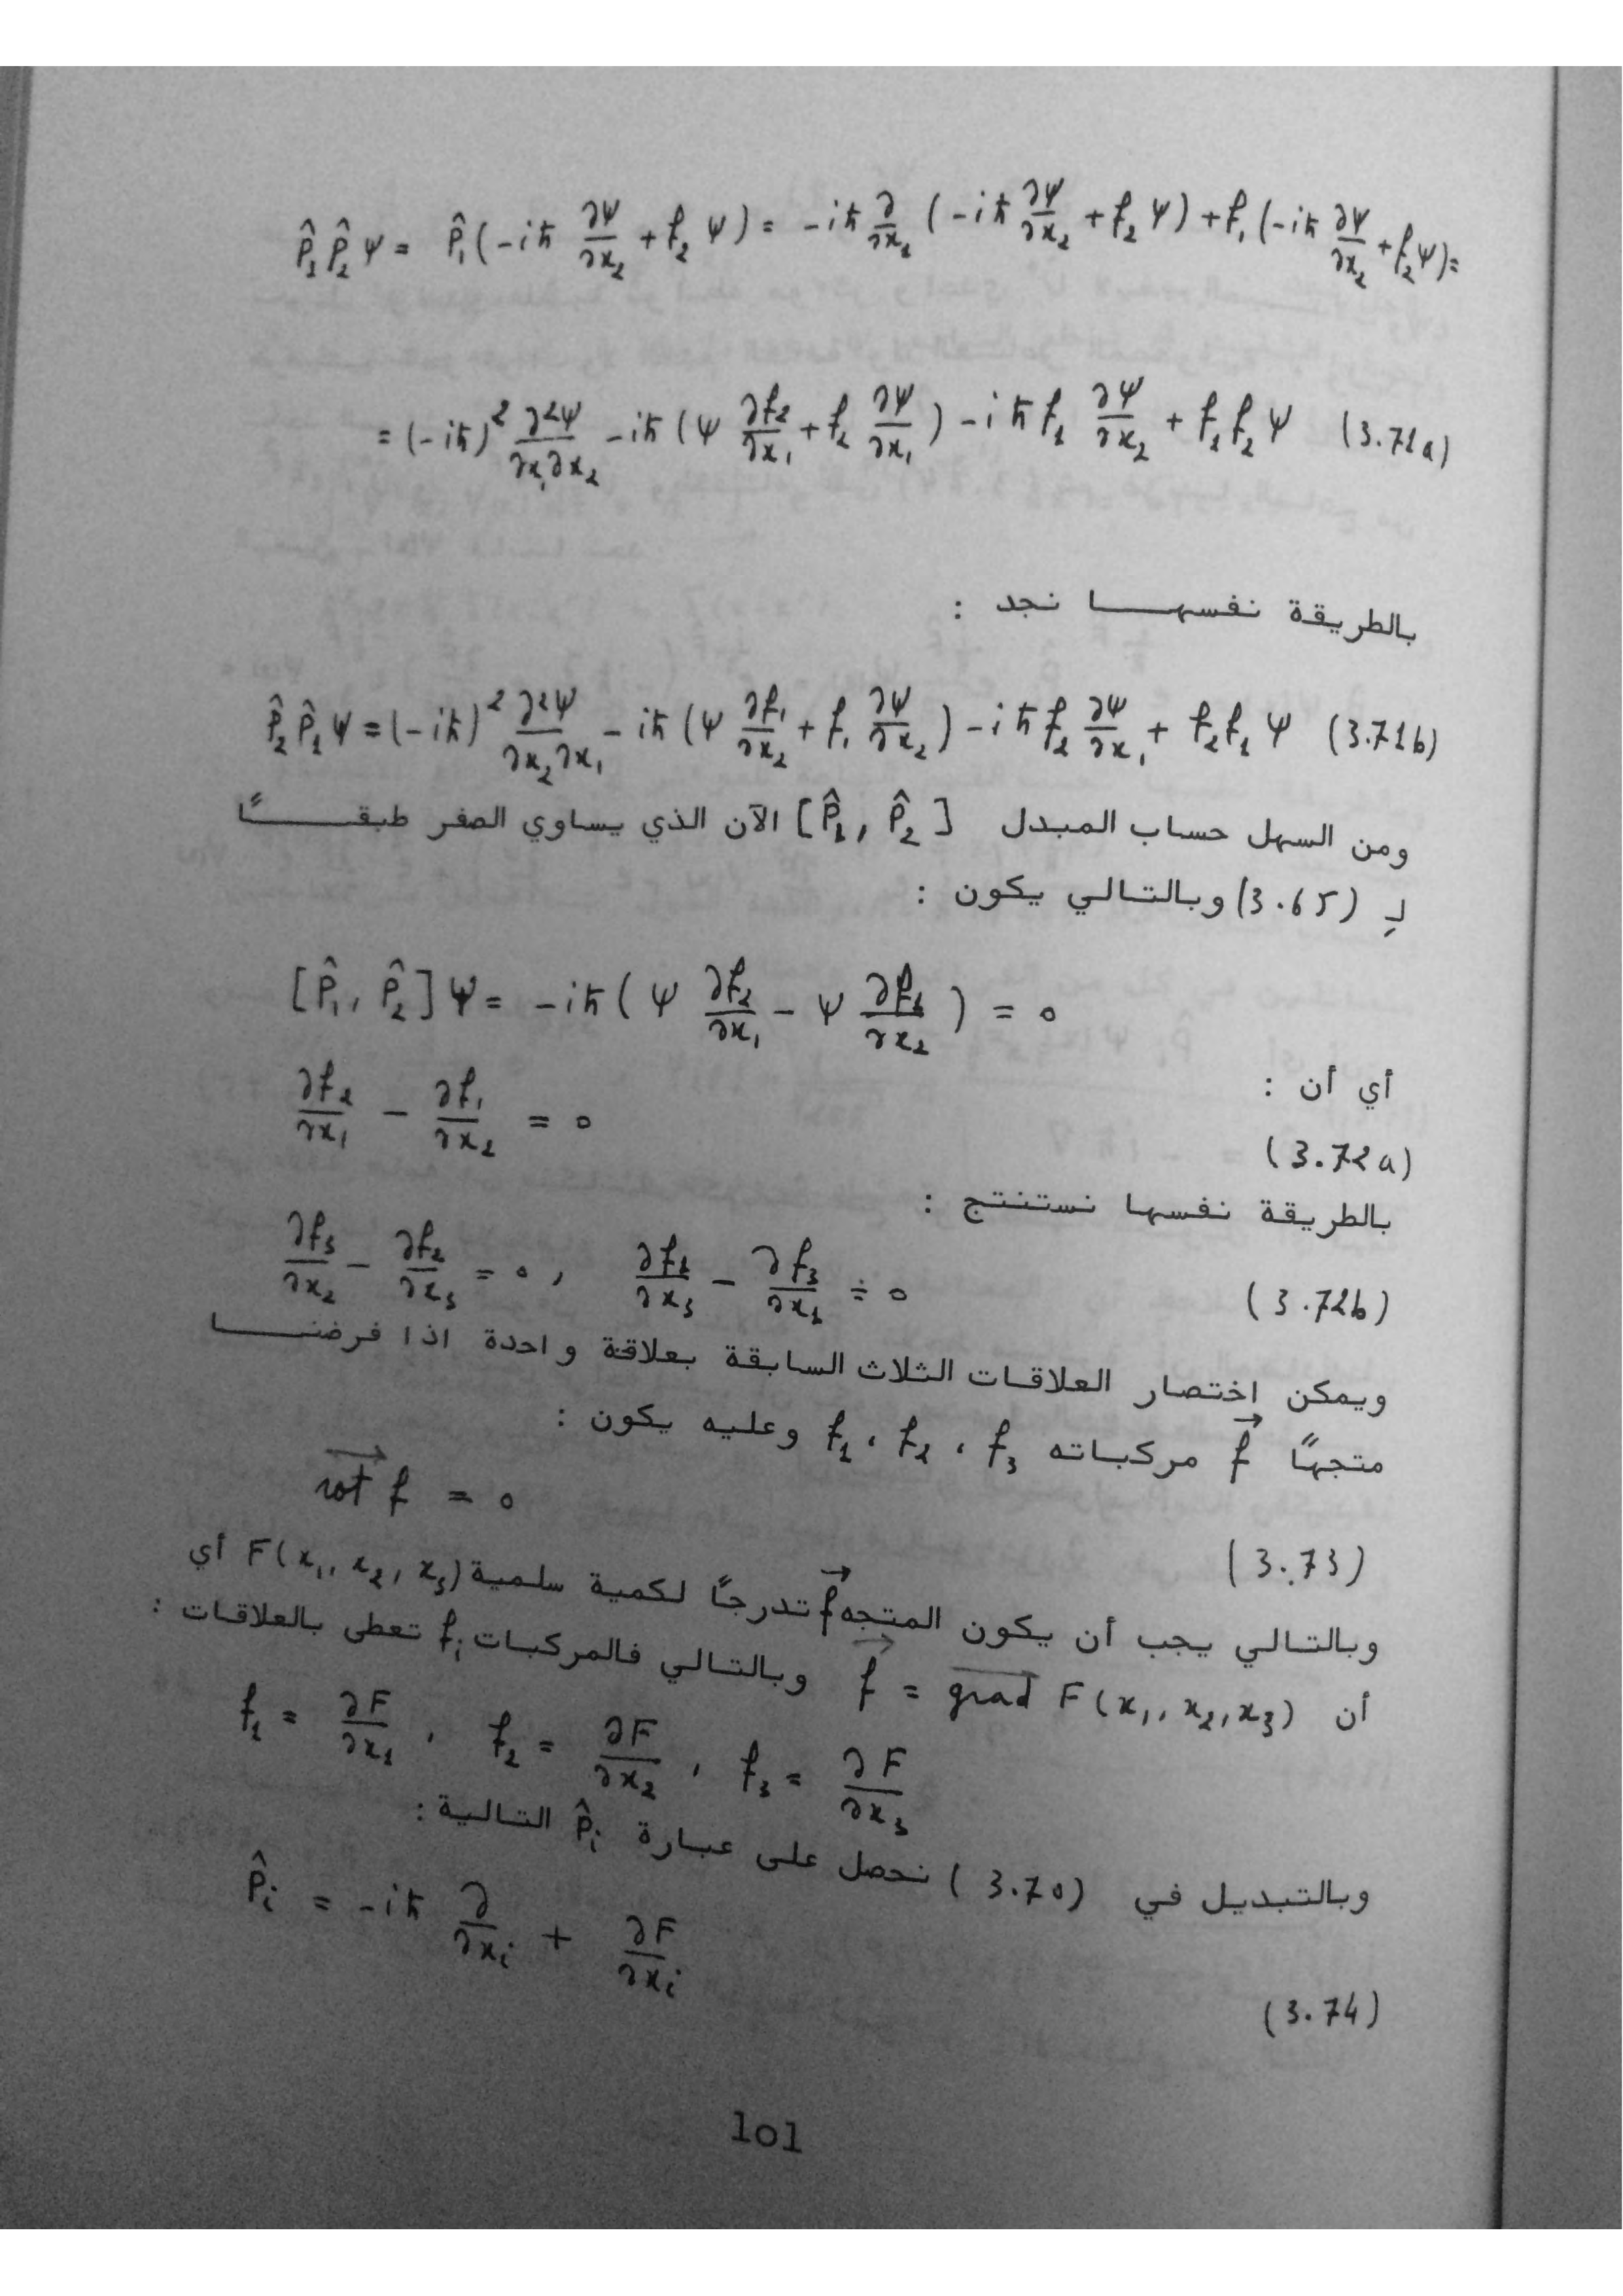 P̂₁P̂₂ψ = P̂₁(-iℏ ∂ψ/∂x₂ + f₂ψ) = -iℏ ∂/∂x₁ (-iℏ ∂ψ/∂x₂ + f₂ψ) + f₁(-iℏ ∂ψ/∂x₂ + f₂ψ) =
= (-iℏ)² ∂²ψ/∂x₁∂x₂ - iℏ(ψ ∂f₂/∂x₁ + f₂ ∂ψ/∂x₁) - iℏ f₁ ∂ψ/∂x₂ + f₁f₂ψ (3.71a)
بالطريقة نفسهـــا نجد :
P̂₂P̂₁ψ = (-iℏ)² ∂²ψ/∂x₂∂x₁ - iℏ(ψ ∂f₁/∂x₂ + f₁ ∂ψ/∂x₂) - iℏ f₂ ∂ψ/∂x₁ + f₂f₁ψ (3.71b)
ومن السهل حساب المبدل [P̂₁, P̂₂] الآن الذي يساوي الصفر طبقـــاً
لـِ (3.65) وبالتالي يكون :
[P̂₁, P̂₂]ψ = -iℏ(ψ ∂f₂/∂x₁ - ψ ∂f₁/∂x₂) = 0
أي أن :
∂f₂/∂x₁ - ∂f₁/∂x₂ = 0 (3.72a)
بالطريقة نفسها نستنتج :
∂f₃/∂x₂ - ∂f₂/∂x₃ = 0 , ∂f₁/∂x₃ - ∂f₃/∂x₁ = 0 (3.72b)
ويمكن اختصار العلاقات الثلاث السابقة بعلاقة واحدة اذا فرضنـــا
متجهاً f⃗ مركباته f₁ ، f₂ ، f₃ وعليه يكون :
rot f = 0 (3.73)
وبالتالي يجب أن يكون المتجه f⃗ تدرجاً لكمية سلمية F(x₁, x₂, x₃) أي
أن f⃗ = grad F(x₁, x₂, x₃) وبالتالي فالمركبات fᵢ تعطى بالعلاقات :
f₁ = ∂F/∂x₁ , f₂ = ∂F/∂x₂ , f₃ = ∂F/∂x₃
وبالتبديل في (3.70) نحصل على عبارة P̂ᵢ التالية :
P̂ᵢ = -iℏ ∂/∂xᵢ + ∂F/∂xᵢ (3.74)
101